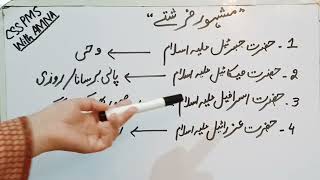 CSS PMS
With AMNA
"مشہور فرشتے"
1- حضرت جبرئیل علیہ اسلام ← وحی
2- حضرت میکائیل علیہ اسلام ← پانی برسانا / روزی
3- حضرت اسرافیل علیہ اسلام
4- حضرت عزرائیل علیہ اسلام ←